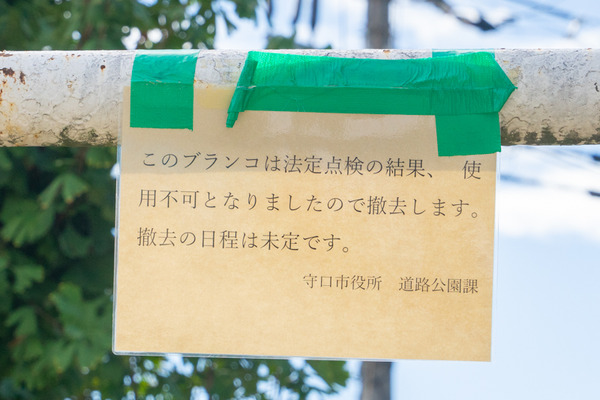 このブランコは法定点検の結果、　使
用不可となりましたので撤去します。
撤去の日程は未定です。
守口市役所　道路公園課